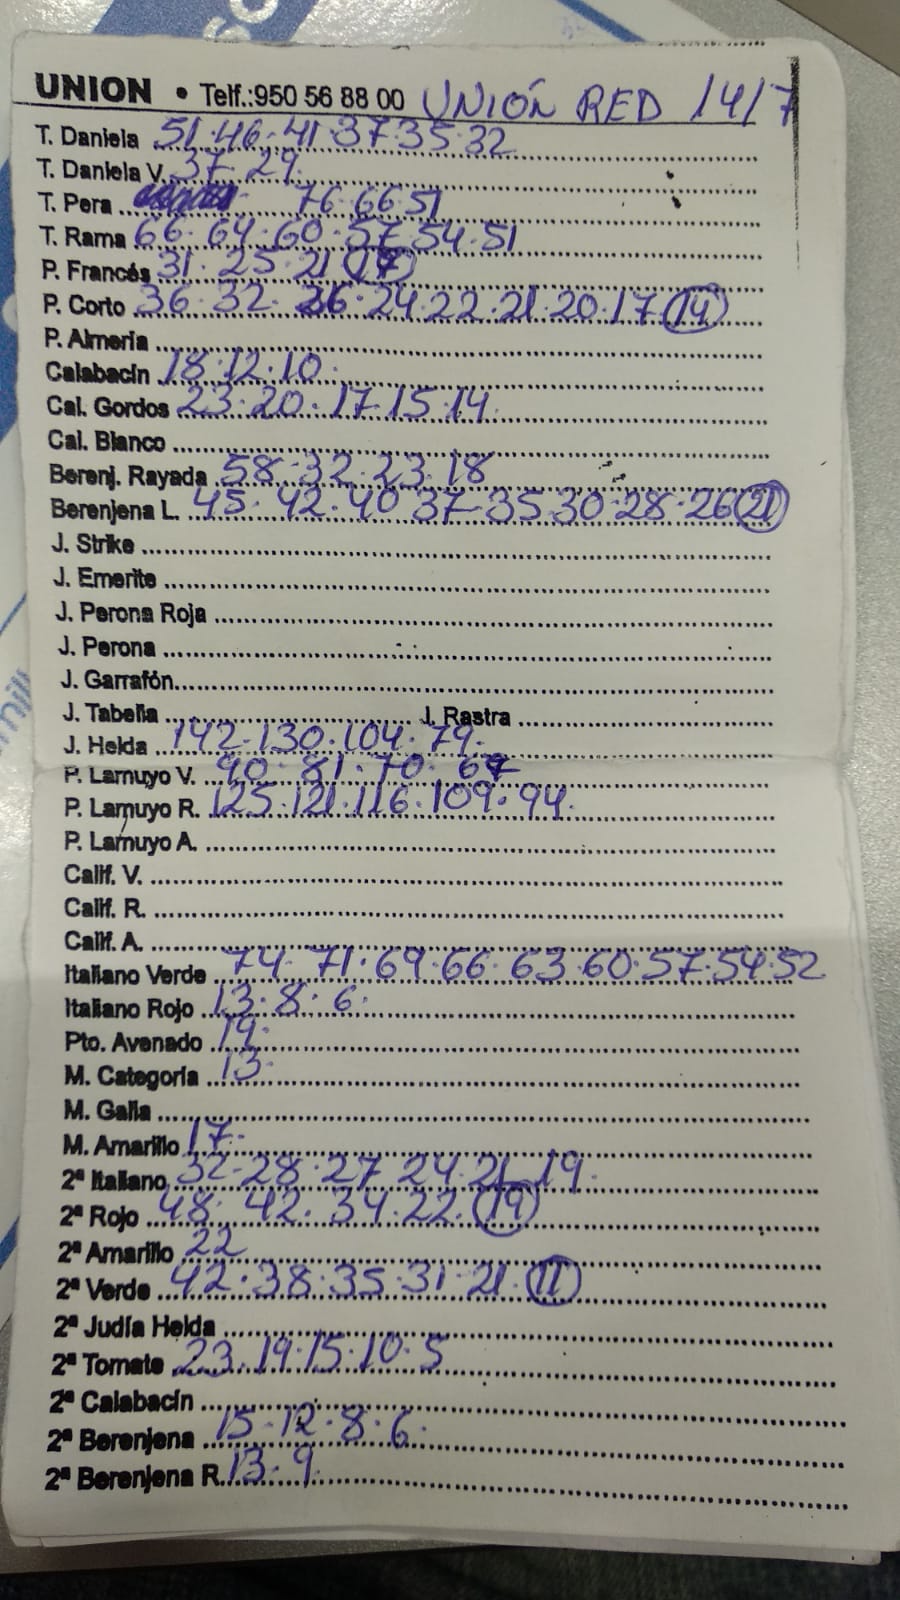 UNION • Telf.:950 56 88 00 UNIÓN RED 14/7
T. Daniela 51·46·41·37·35·32
T. Daniela V. 37·29.
T. Pera 76·66·51
T. Rama 66·64·60·57·54·51
P. Francés 31·25·21
P. Corto 36·32·26·24·22·21·20·17·14
P. Almería
Calabacín 18·12·10·
Cal. Gordos 23·20·17·15·14.
Cal. Blanco
Berenj. Rayada 58·32·23·18
Berenjena L. 45·42·40·37·35·30·28·26·21
J. Strike
J. Emerite
J. Perona Roja
J. Perona
J. Garrafón
J. Tabella J. Rastra
J. Helda 142·130·104·79.
P. Lamuyo V. 90·81·70·
P. Lamuyo R. 125·121·116·109·94.
P. Lamuyo A.
Calif. V.
Calif. R.
Calif. A.
Italiano Verde 74·71·69·66·63·60·57·54·52
Italiano Rojo 13·8·6·
Pto. Avenado 19·
M. Categoría 13·
M. Galia
M. Amarillo 17·
2ª Italiano 32·28·27·24·21·19·
2ª Rojo 48·42·34·22·19
2ª Amarillo 22
2ª Verde 42·38·35·31·21·11
2ª Judía Helda
2ª Tomate 23·19·15·10·5
2ª Calabacín
2ª Berenjena 15·12·8·6·
2ª Berenjena R. 13·9.